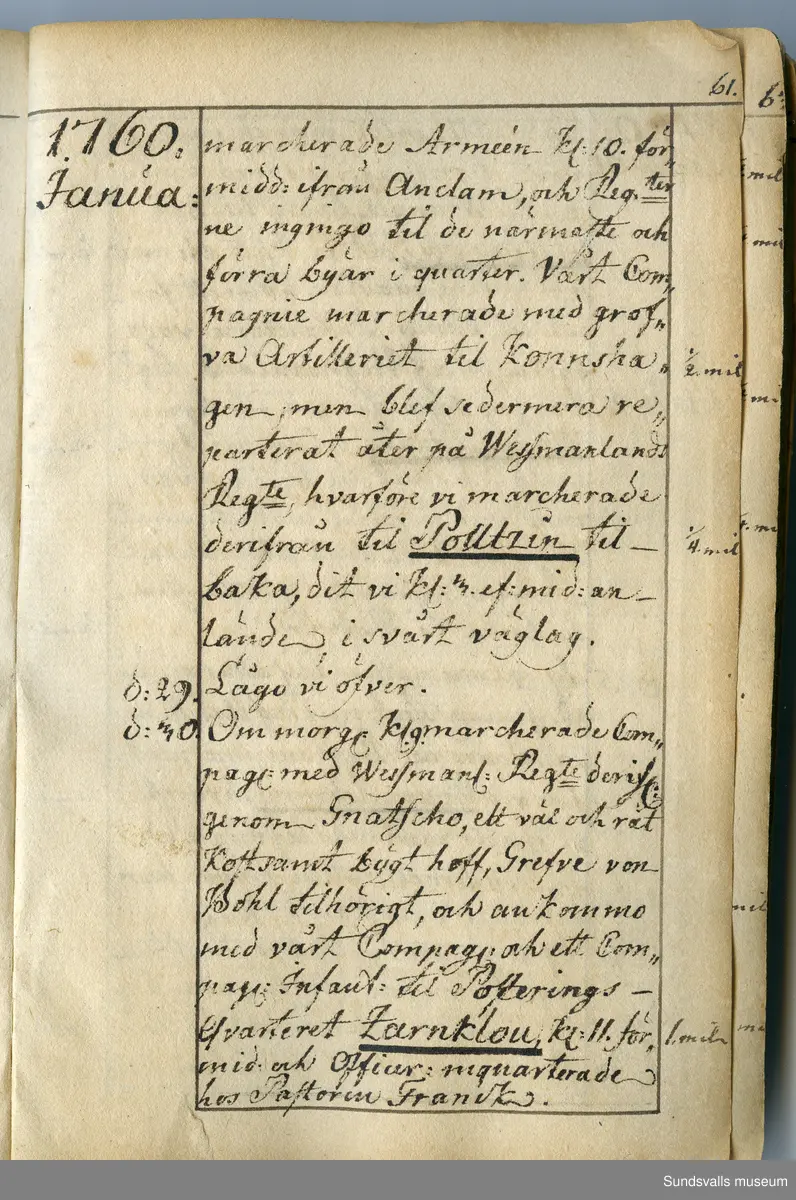 61.
1760.
Janua:
marcherade Arméen kl: 10. för„
midd: ifrån Anclam, och Reg:ter
ne ingingo til de närmaste och
förra byar i quarter. Vårt Com„
pagnie marcherade med grof„
va Artilleriet til Konnsha„
gen, men blef sedermera re„
parterat åter på Wessmanlands
Regte, hvarföre vi marcherade
derifrån til Polltzin til-
baka, dit vi kl: 3. ef: mid: an-
lände, i svårt väglag.
½. mil
¼. mil
d: 29. Lågo vi öfver.
d: 30. Om morg: kl. 9. marcherade Com„
pag: med Wessmanl: Regte derif:
genom Gnatscho, ett väl och rät
kostsamt bygt hoff, Grefve von
Bohl tilhörigt, och ankommo
med vårt Compag: och ett Com„
pag: Infant: til Posterings-
qvarteret Zarnklou, kl: 11. för„ 1. mil
mid: och Officer: inquarterade
hos Pastorn Franck.
Sundsvalls museum